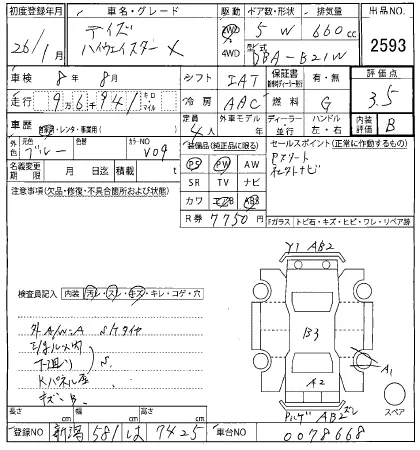 初度登録年月 車名・グレード 駆動 ドア数・形状 排気量 出品NO.
26/1月 デイズ ハイウェイスター X 2WD 4WD 5 W 660cc 2593
型式 DBA-B21W
車検 8年 8月 シフト IAT 保証書 有・無 評価点
走行 9万6千941 キロ マイル 冷房 AAC 燃料 G 3.5
車歴 自家用・レンタ・事業用( ) 定員 4人 外車モデル 年 ディーラー・並行 ハンドル 左・右 内装評価 B
外色 元色 ブルー 色替 カラーNO V09 装備品(純正品に限る) セールスポイント(正常に作動するもの)
名義変更期限 月 日迄 積載 t PS PW AW Pスタート
注意事項(欠品・修復・不具合箇所および状態) SR TV ナビ
カワ エアB ABS
R券 7750円 Fガラス トビ石・キズ・ヒビ・ワレ・リペア跡
Y1 AB2
検査員記入 内装 汚レ・スレ・キズ・キレ・コゲ・穴
外A/W-A Sバタイヤ
B3
下廻り S
A1
Kパネル座
A2
キズB
スペア
AB2 ズレ
長さ cm 幅 cm 高さ cm
登録NO 新潟 581 は 7425 車台NO 0078668